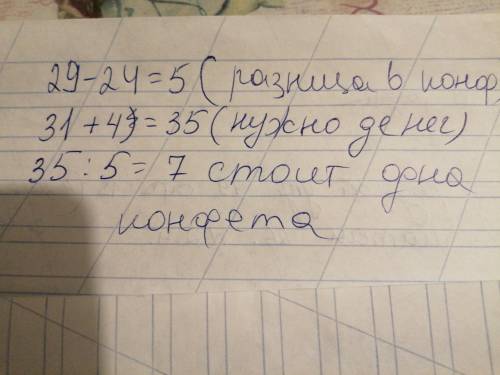 29-24=5 ( разница в конф
31+4)=35 (нужно денег)
35:5= 7 стоит одна
конфета